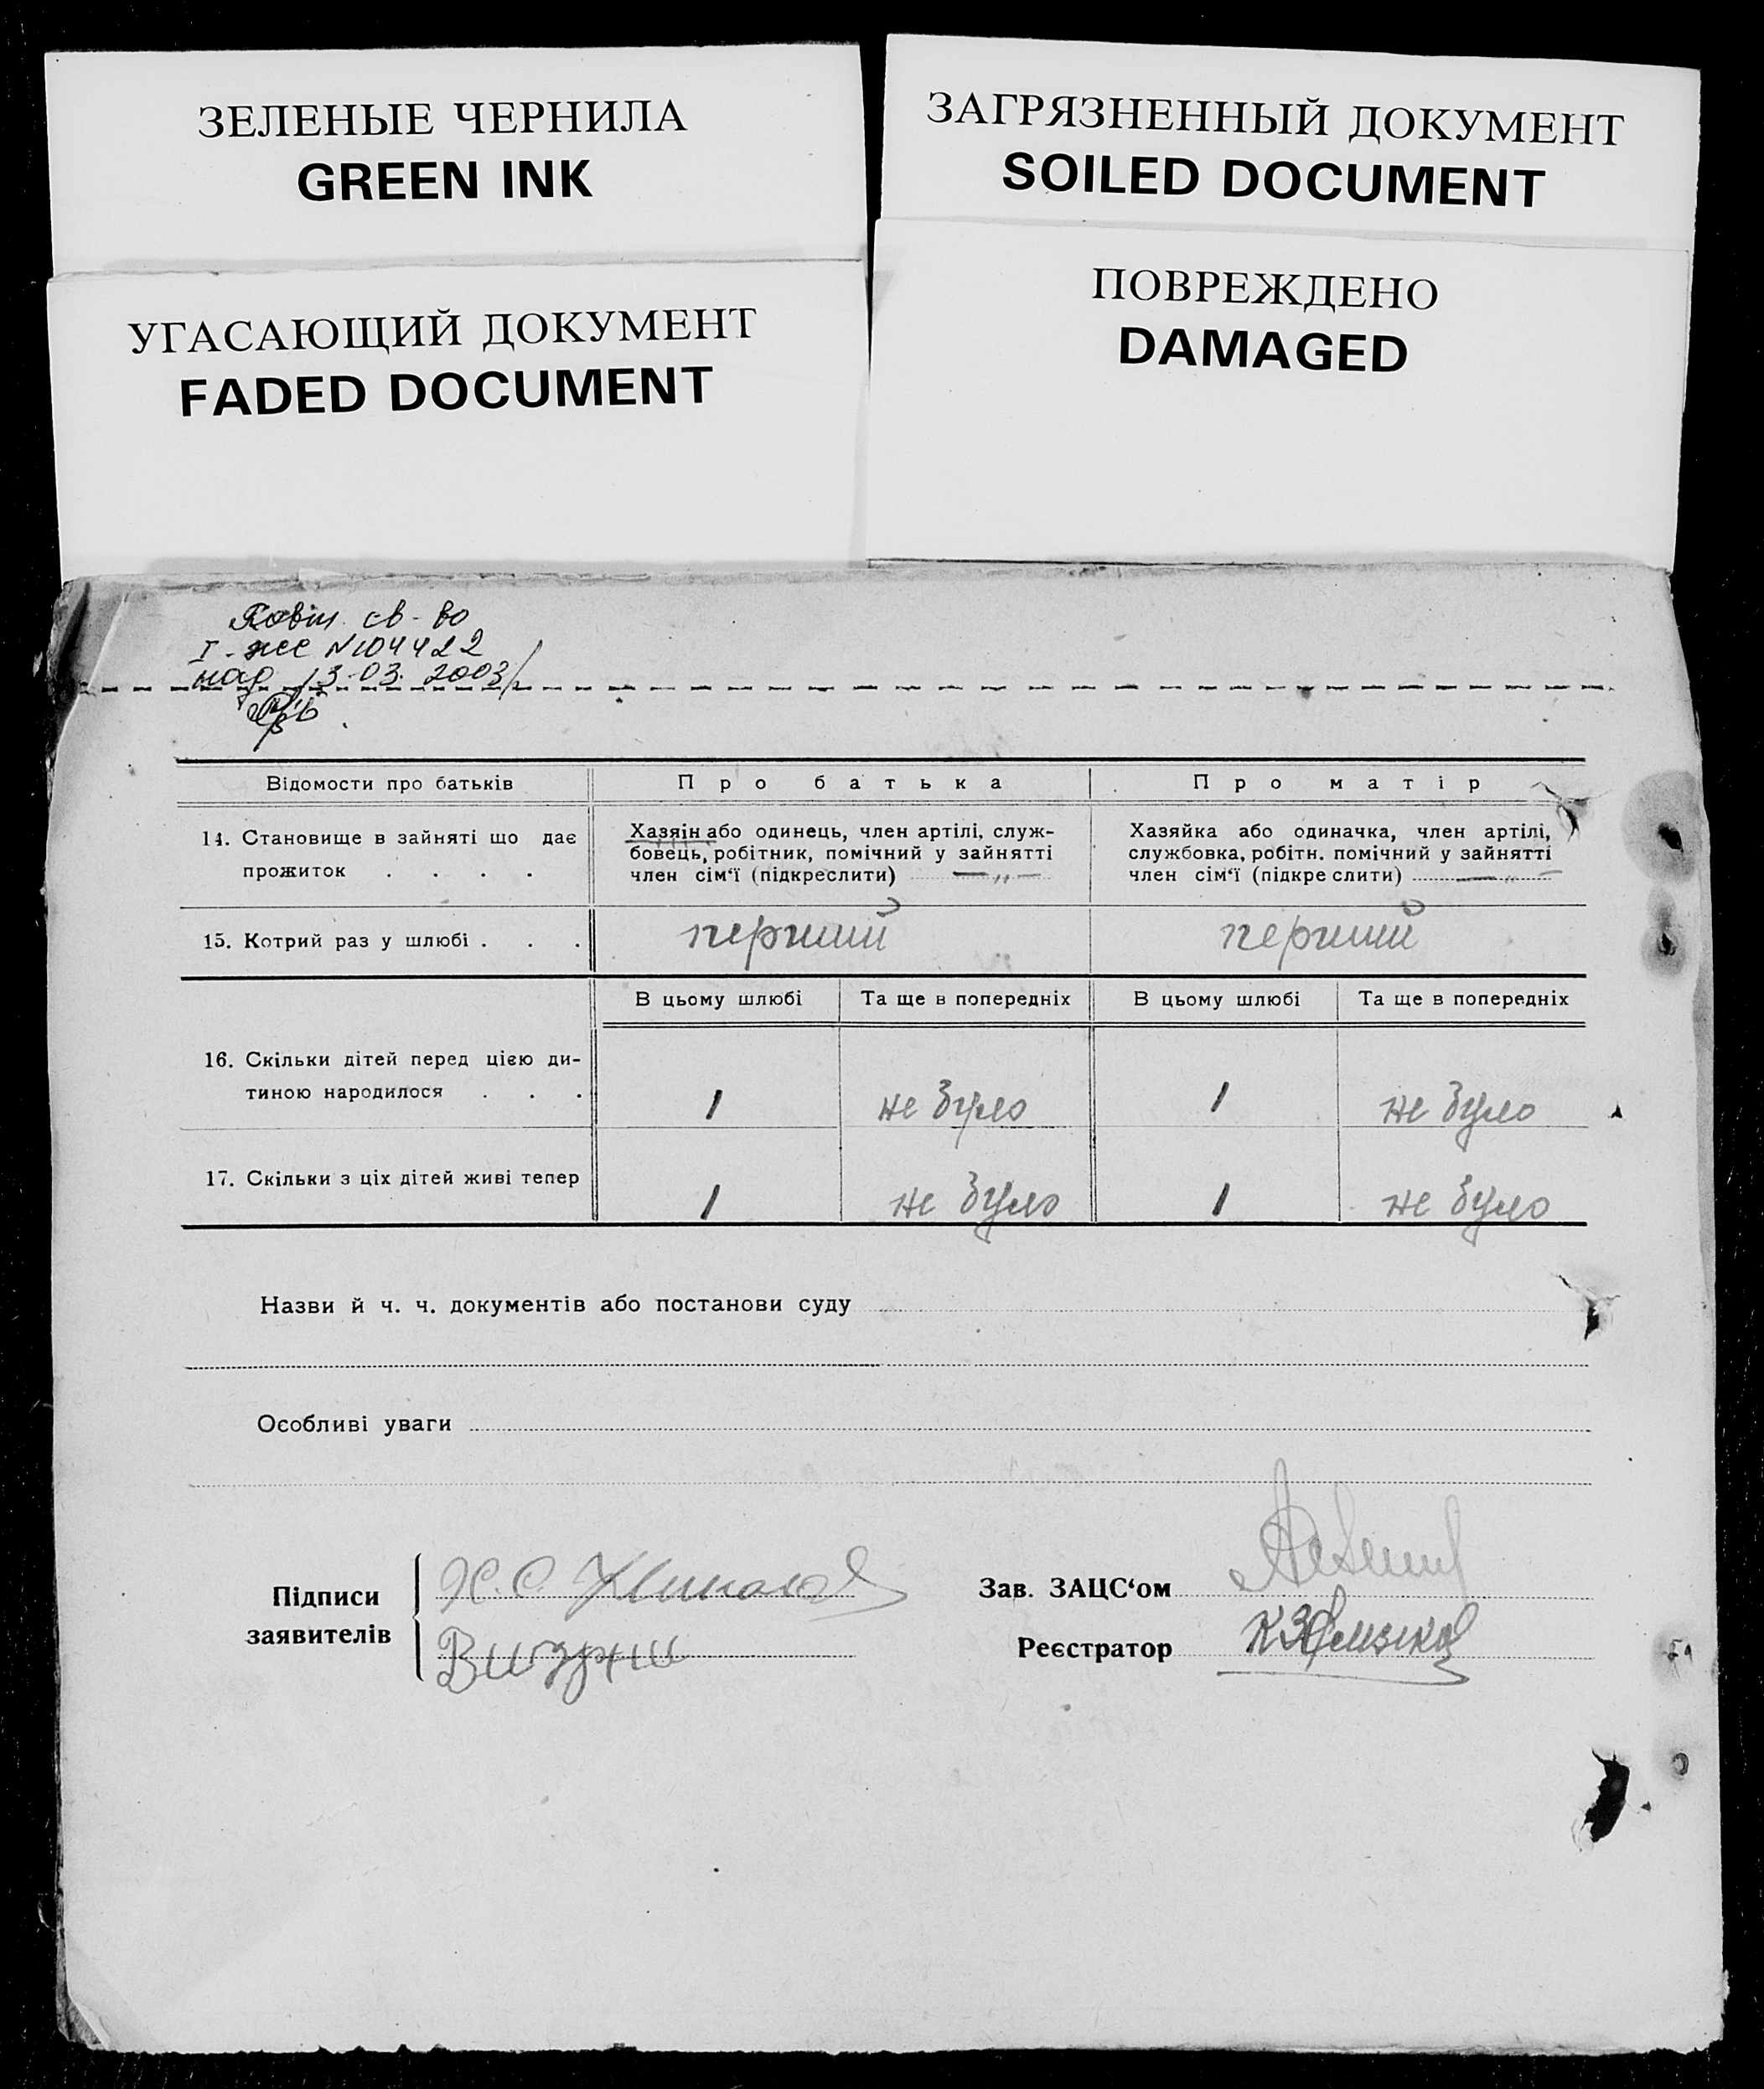 ЗЕЛЕНЫЕ ЧЕРНИЛА
GREEN INK
ЗАГРЯЗНЕННЫЙ ДОКУМЕНТ
SOILED DOCUMENT
УГАСАЮЩИЙ ДОКУМЕНТ
FADED DOCUMENT
ПОВРЕЖДЕНО
DAMAGED
св-во
N 104422
13-03. 2003
Відомости про батьків
Про батька
Про матір
14. Становище в зайняті що дає
прожиток . . . .
Хазяїн або одинець, член артілі, служ-
бовець, робітник, помічний у зайнятті
член сім‘ї (підкреслити) — „ —
Хазяйка або одиначка, член артілі,
службовка, робітн. помічний у зайнятті
член сім‘ї (підкреслити) — „ —
15. Котрий раз у шлюбі . . .
перший
перший
В цьому шлюбі
Та ще в попередніх
В цьому шлюбі
Та ще в попередніх
16. Скільки дітей перед цією ди-
тиною народилося . . .
1
не було
1
не було
17. Скільки з ціх дітей живі тепер
1
не було
1
не було
Назви й ч. ч. документів або постанови суду
Особливі уваги
Підписи
заявителів
Зав. ЗАЦС‘ом
Реєстратор